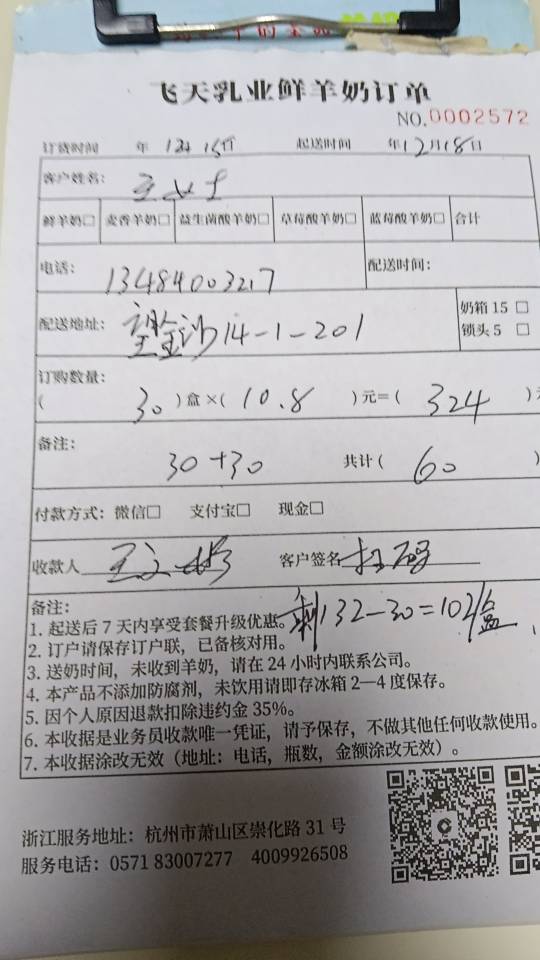 飞天乳业鲜羊奶订单
NO.0002572
订货时间 年 12月15日 起送时间 年12月18日
客户姓名: 王女士
鲜羊奶□ 麦香羊奶□ 益生菌酸羊奶□ 草莓酸羊奶□ 蓝莓酸羊奶□ 合计
电话: 13484003217 配送时间:
配送地址: 望金沙14-1-201 奶箱 15 □
锁头 5 □
订购数量:
( 30 )盒×( 10.8 )元=( 324 )
备注: 30+30 共计( 60 )
付款方式: 微信□ 支付宝□ 现金□
收款人 客户签名 扫码
备注: 剩132-30=102盒
1. 起送后 7 天内享受套餐升级优惠。
2. 订户请保存订户联，已备核对用。
3. 送奶时间，未收到羊奶，请在 24 小时内联系公司。
4. 本产品不添加防腐剂，未饮用请即存冰箱 2—4 度保存。
5. 因个人原因退款扣除违约金 35%。
6. 本收据是业务员收款唯一凭证，请予保存，不做其他任何收款使用。
7. 本收据涂改无效（地址: 电话，瓶数，金额涂改无效）。
浙江服务地址: 杭州市萧山区崇化路 31 号
服务电话: 0571 83007277 4009926508